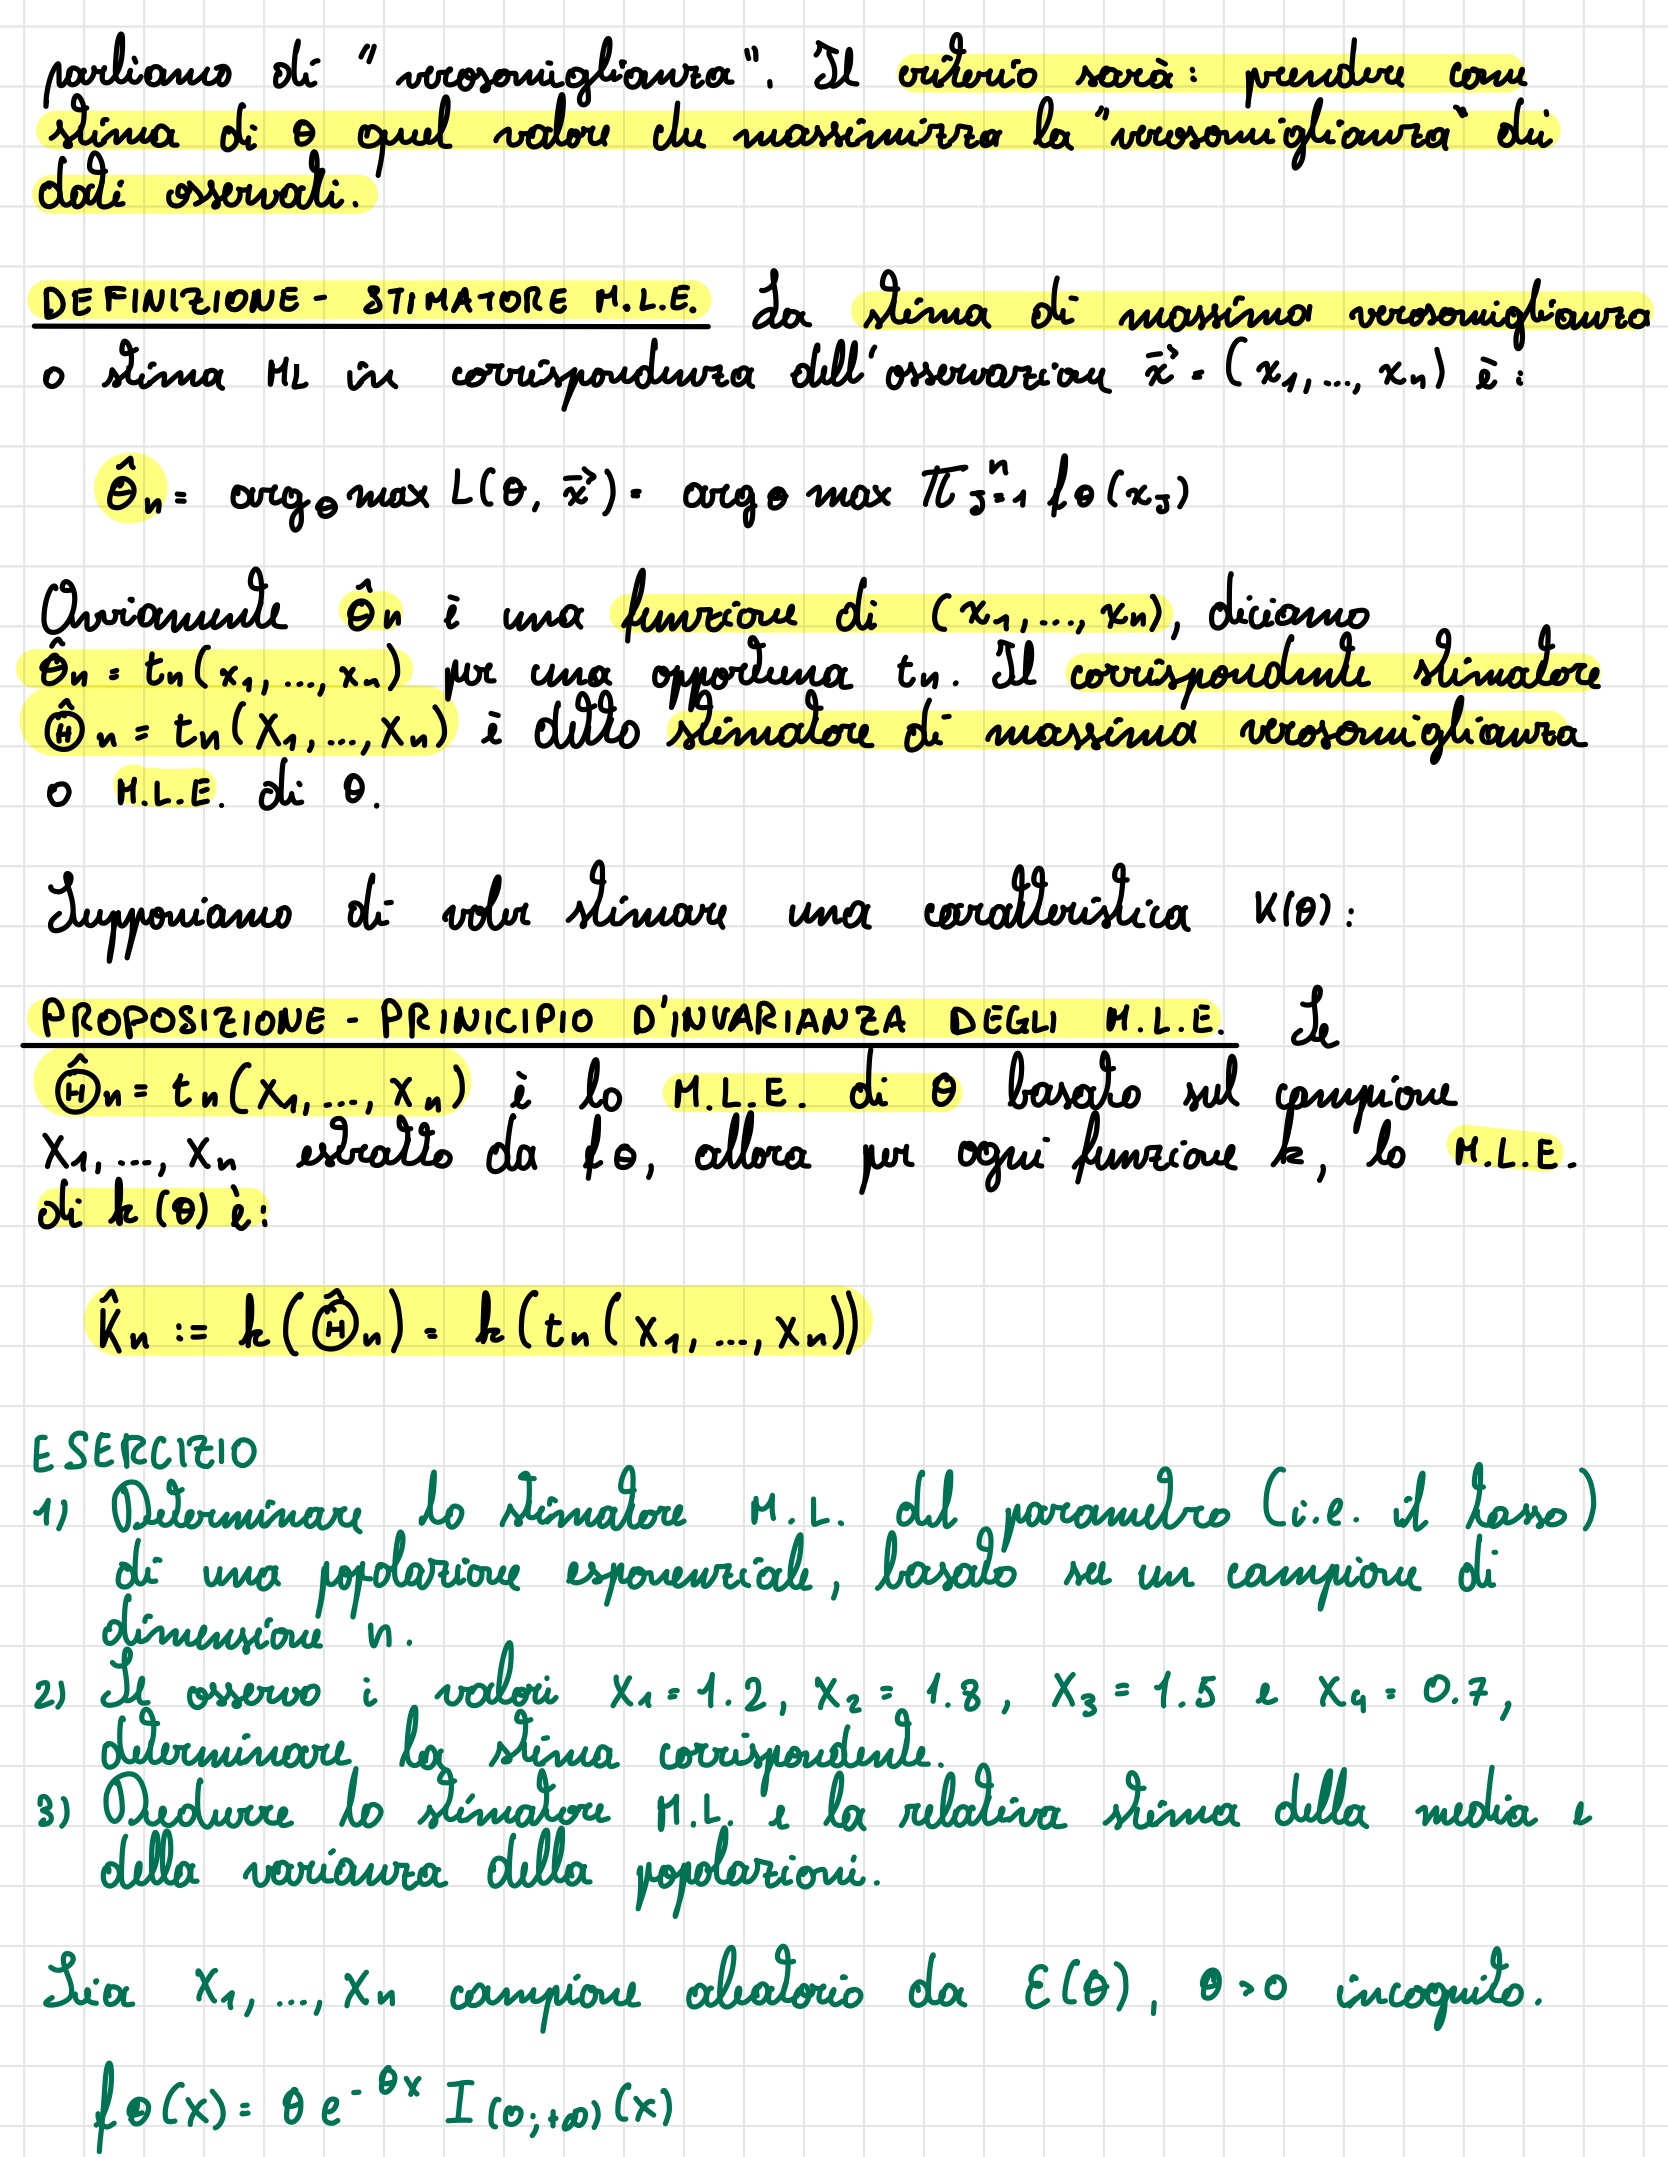 parliamo di "verosomiglianza". Il criterio sarà: prendere come
stima di θ quel valore che massimizza la "verosomiglianza" dei
dati osservati.
DEFINIZIONE - STIMATORE M.L.E. La stima di massima verosomiglianza
o stima ML in corrispondenza dell'osservazione x̄⃗ = (x₁, ..., xₙ) è:
θ̂ₙ = arg_θ max L(θ, x̄⃗) = arg_θ max Π_{J=1}^n f_θ(x_J)
Ovviamente θ̂ₙ è una funzione di (x₁, ..., xₙ), diciamo
θ̂ₙ = tₙ(x₁, ..., xₙ) per una opportuna tₙ. Il corrispondente stimatore
Θ̂ₙ = tₙ(X₁, ..., Xₙ) è detto stimatore di massima verosomiglianza
o M.L.E. di θ.
Supponiamo di voler stimare una caratteristica K(θ):
PROPOSIZIONE - PRINICIPIO D'INVARIANZA DEGLI M.L.E. Se
Θ̂ₙ = tₙ(X₁, ..., Xₙ) è lo M.L.E. di θ basato sul campione
X₁, ..., Xₙ estratto da f_θ, allora per ogni funzione k, lo M.L.E.
di k(θ) è:
K̂ₙ := k(Θ̂ₙ) = k(tₙ(X₁, ..., Xₙ))
ESERCIZIO
1) Determinare lo stimatore M.L. del parametro (i.e. il tasso)
di una popolazione esponenziale, basato su un campione di
dimensione n.
2) Se osservo i valori X₁ = 1.2, X₂ = 1.8, X₃ = 1.5 e X₄ = 0.7,
determinare la stima corrispondente.
3) Dedurre lo stimatore M.L. e la relativa stima della media e
della varianza della popolazioni.
Sia X₁, ..., Xₙ campione aleatorio da Ɛ(θ), θ>0 incognito.
f_θ(x) = θ e^{-θx} I_{(0;+∞)}(x)